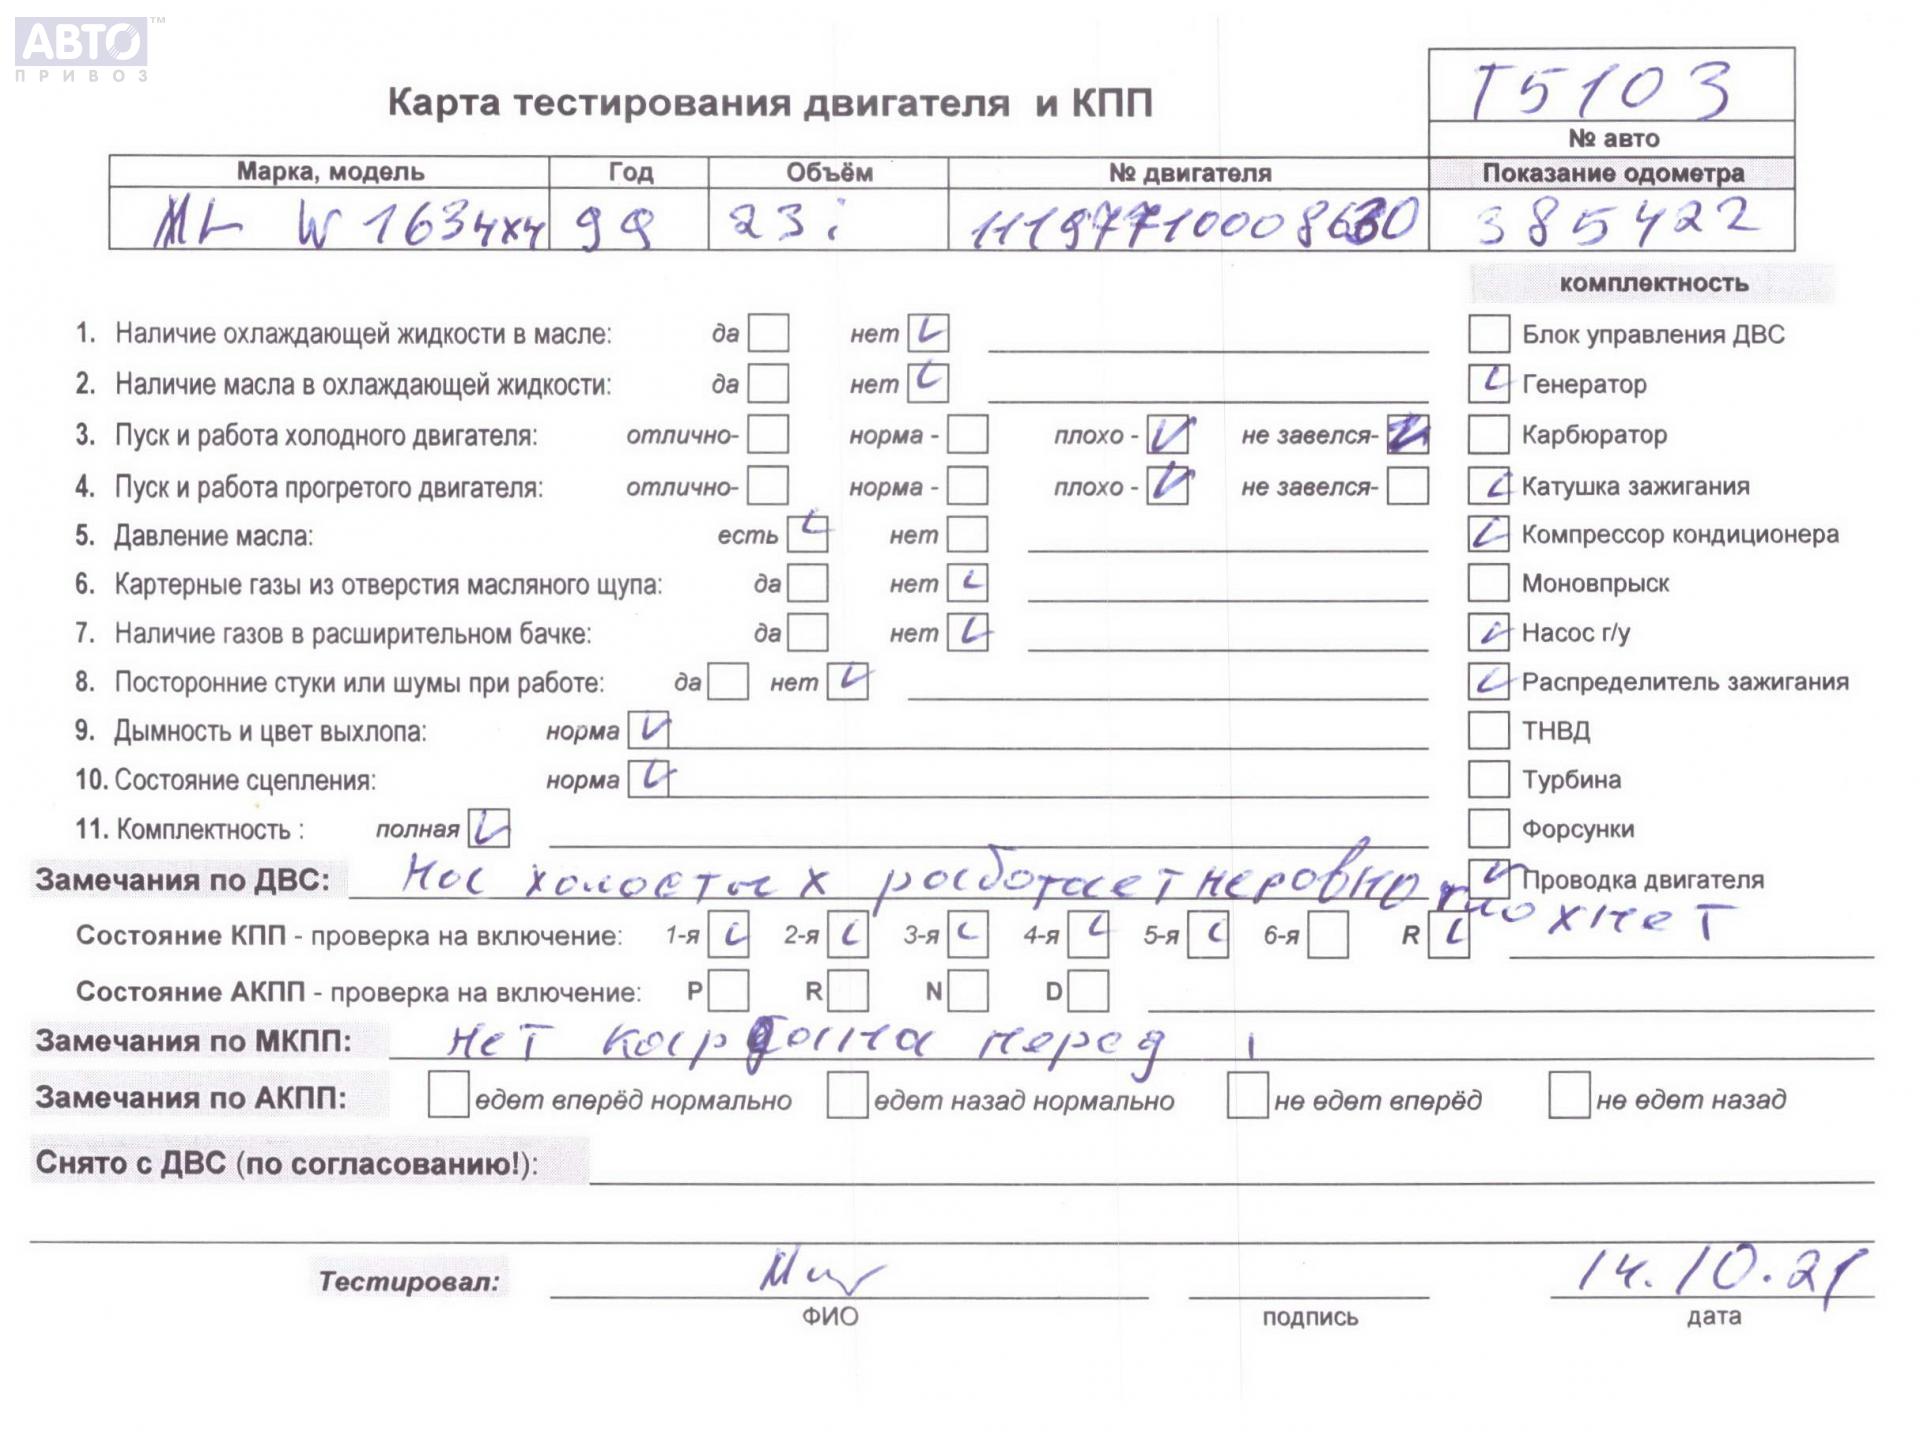 АВТО™
ПРИВОЗ
Т5103
Карта тестирования двигателя и КПП
№ авто
Марка, модель Год Объём № двигателя Показание одометра
ML W 163 4x4 99 23i 385422
комплектность
1. Наличие охлаждающей жидкости в масле: да нет Блок управления ДВС
2. Наличие масла в охлаждающей жидкости: да нет Генератор
3. Пуск и работа холодного двигателя: отлично- норма - плохо - не завелся- Карбюратор
4. Пуск и работа прогретого двигателя: отлично- норма - плохо - не завелся- Катушка зажигания
5. Давление масла: есть нет Компрессор кондиционера
6. Картерные газы из отверстия масляного щупа: да нет Моновпрыск
7. Наличие газов в расширительном бачке: да нет Насос г/у
8. Посторонние стуки или шумы при работе: да нет Распределитель зажигания
9. Дымность и цвет выхлопа: норма ТНВД
10. Состояние сцепления: норма Турбина
11. Комплектность : полная Форсунки
Замечания по ДВС: На холостых работает неровно глохнет Проводка двигателя
Состояние КПП - проверка на включение: 1-я 2-я 3-я 4-я 5-я 6-я R
Состояние АКПП - проверка на включение: P R N D
Замечания по МКПП: нет кардана перед
Замечания по АКПП: едет вперёд нормально едет назад нормально не едет вперёд не едет назад
Снято с ДВС (по согласованию!):
Тестировал: 14.10.21
ФИО подпись дата